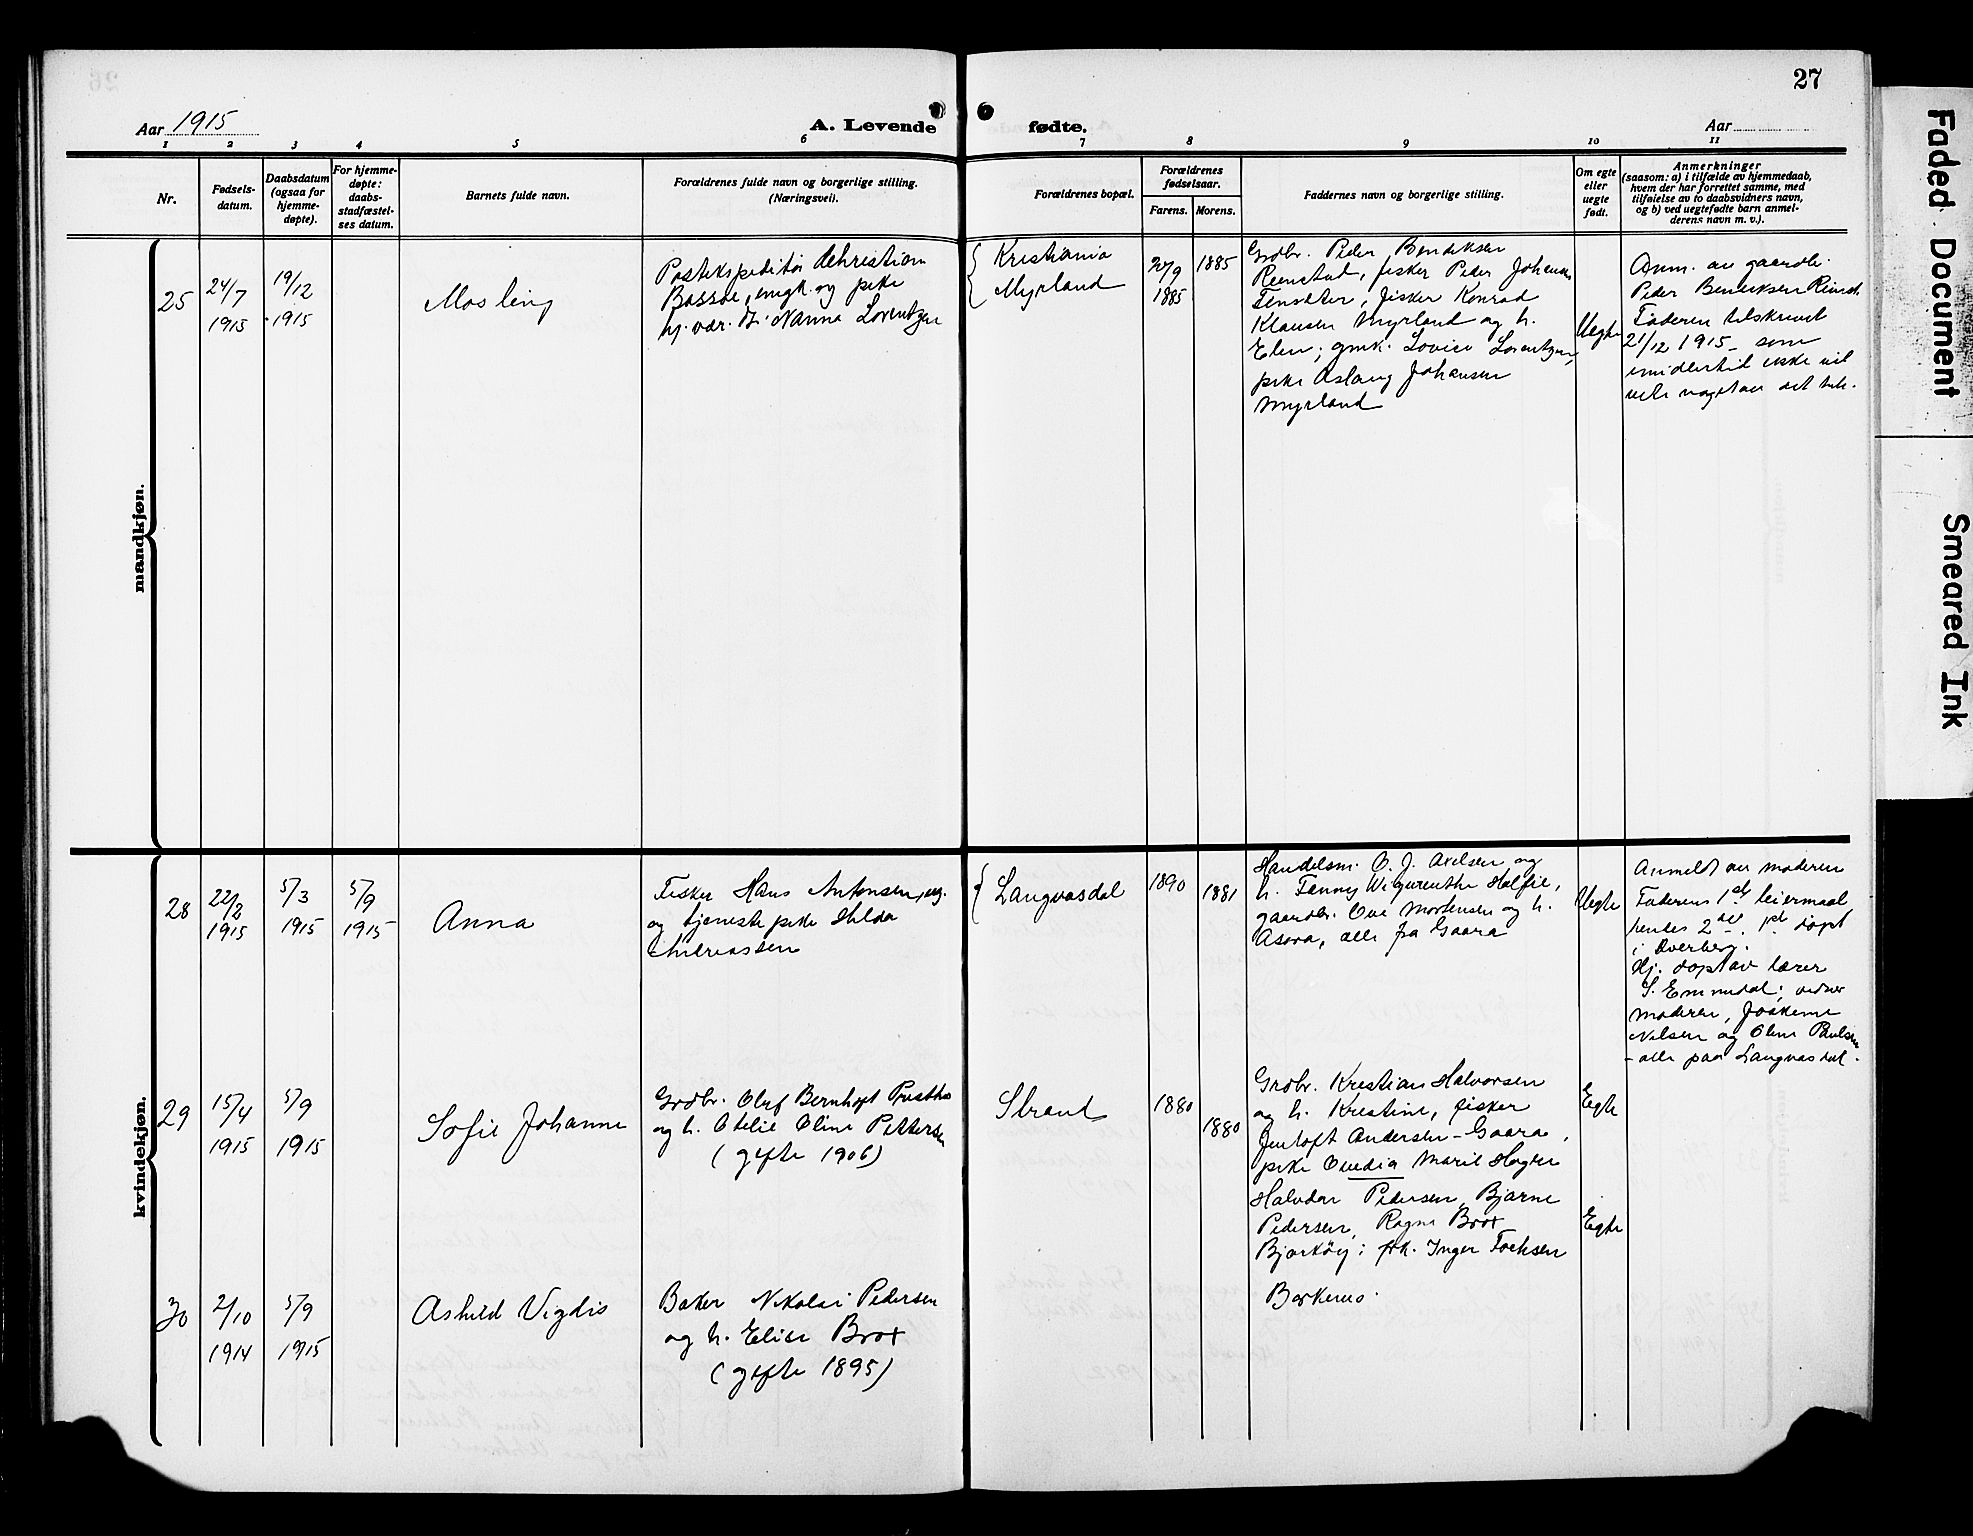 27
Aar 1915
A. Levende fødte.
Aar
1 2 3 4 5 6 7 8 9 10 11
Nr.
Fødsels-
datum.
Daabsdatum
(ogsaa for
hjemme-
døpte).
For hjemme-
døpte:
daabs-
stadfæstel-
ses datum.
Barnets fulde navn.
Forældrenes fulde navn og borgerlige stilling.
(Næringsvei).
Forældrenes bopæl.
Forældrenes
fødselsaar.
Farens. Morens.
Faddernes navn og borgerlige stilling.
Om egte
eller
uegte
født.
Anmerkninger
(saasom: a) i tilfælde av hjemmedaab,
hvem der har forrettet samme, med
tilføielse av to daabsvidners navn,
og b) ved uegtefødte barn anmel-
derens navn m. v.).
mandkjøn.
25
24/7
1915
19/12
1915
Postekspeditør
Bassøe, ungk. og pike
hj. vær. Nanna Lorentzen
Kristiania
Myrland
27/9
1885
1885
Grdbr. Peder Bendiksen
Reinstad, fisker Peder Johansen
fisker Konrad
Klausen Myrland og h.
Elen; gmk. Lovise Lorentzen,
pike Aslaug Johansen
Myrland
Uegte
Anm. av gaardbr.
Peder Bendiksen Reinst.
Faderen tilskrevet
21/12 1915 - som
imidlertid ikke vil
kvindekjøn.
28
22/2
1915
5/3
1915
5/9
1915
Anna
Fisker Hans Antonsen, ug.
og tjenestepike Hilda
Andreassen
Langvasdal
1890
1881
Handelsm. O. J. Axelsen og
h. Fanny
gaardbr. Ove Mortensen og h.
Asora, alle fra Gaara
Uegte
Anmeldt av moderen
Faderens 1ste leiermaal
hendes 2det. døpt
i Dverberg.
Hj. døpt av lærer
vidner
moderen,
Nilsen og Oline Paulsen
- alle paa Langvasdal.
29
15/4
1915
5/9
1915
Sofie Johanne
Grdbr. Oluf Bernhoft
og h. Otelie Oline Pettersen
(gifte 1906)
Strand
1880
1880
Grdbr. Kristian Halvorsen
og h. Kristine, fisker
Jentoft Andersen - Gaara,
pike Ovedia Marie
Egte
30
2/10
1914
5/9
1915
Ashild Vigdis
Baker Nikolai Pedersen
og h. Elise Brox
(gifte 1895)
Halvdan Pedersen, Bjarne
Pedersen, Ragna Brox
Bjarkøy; frk. Inger
Egte
Faded Document
Smeared Ink